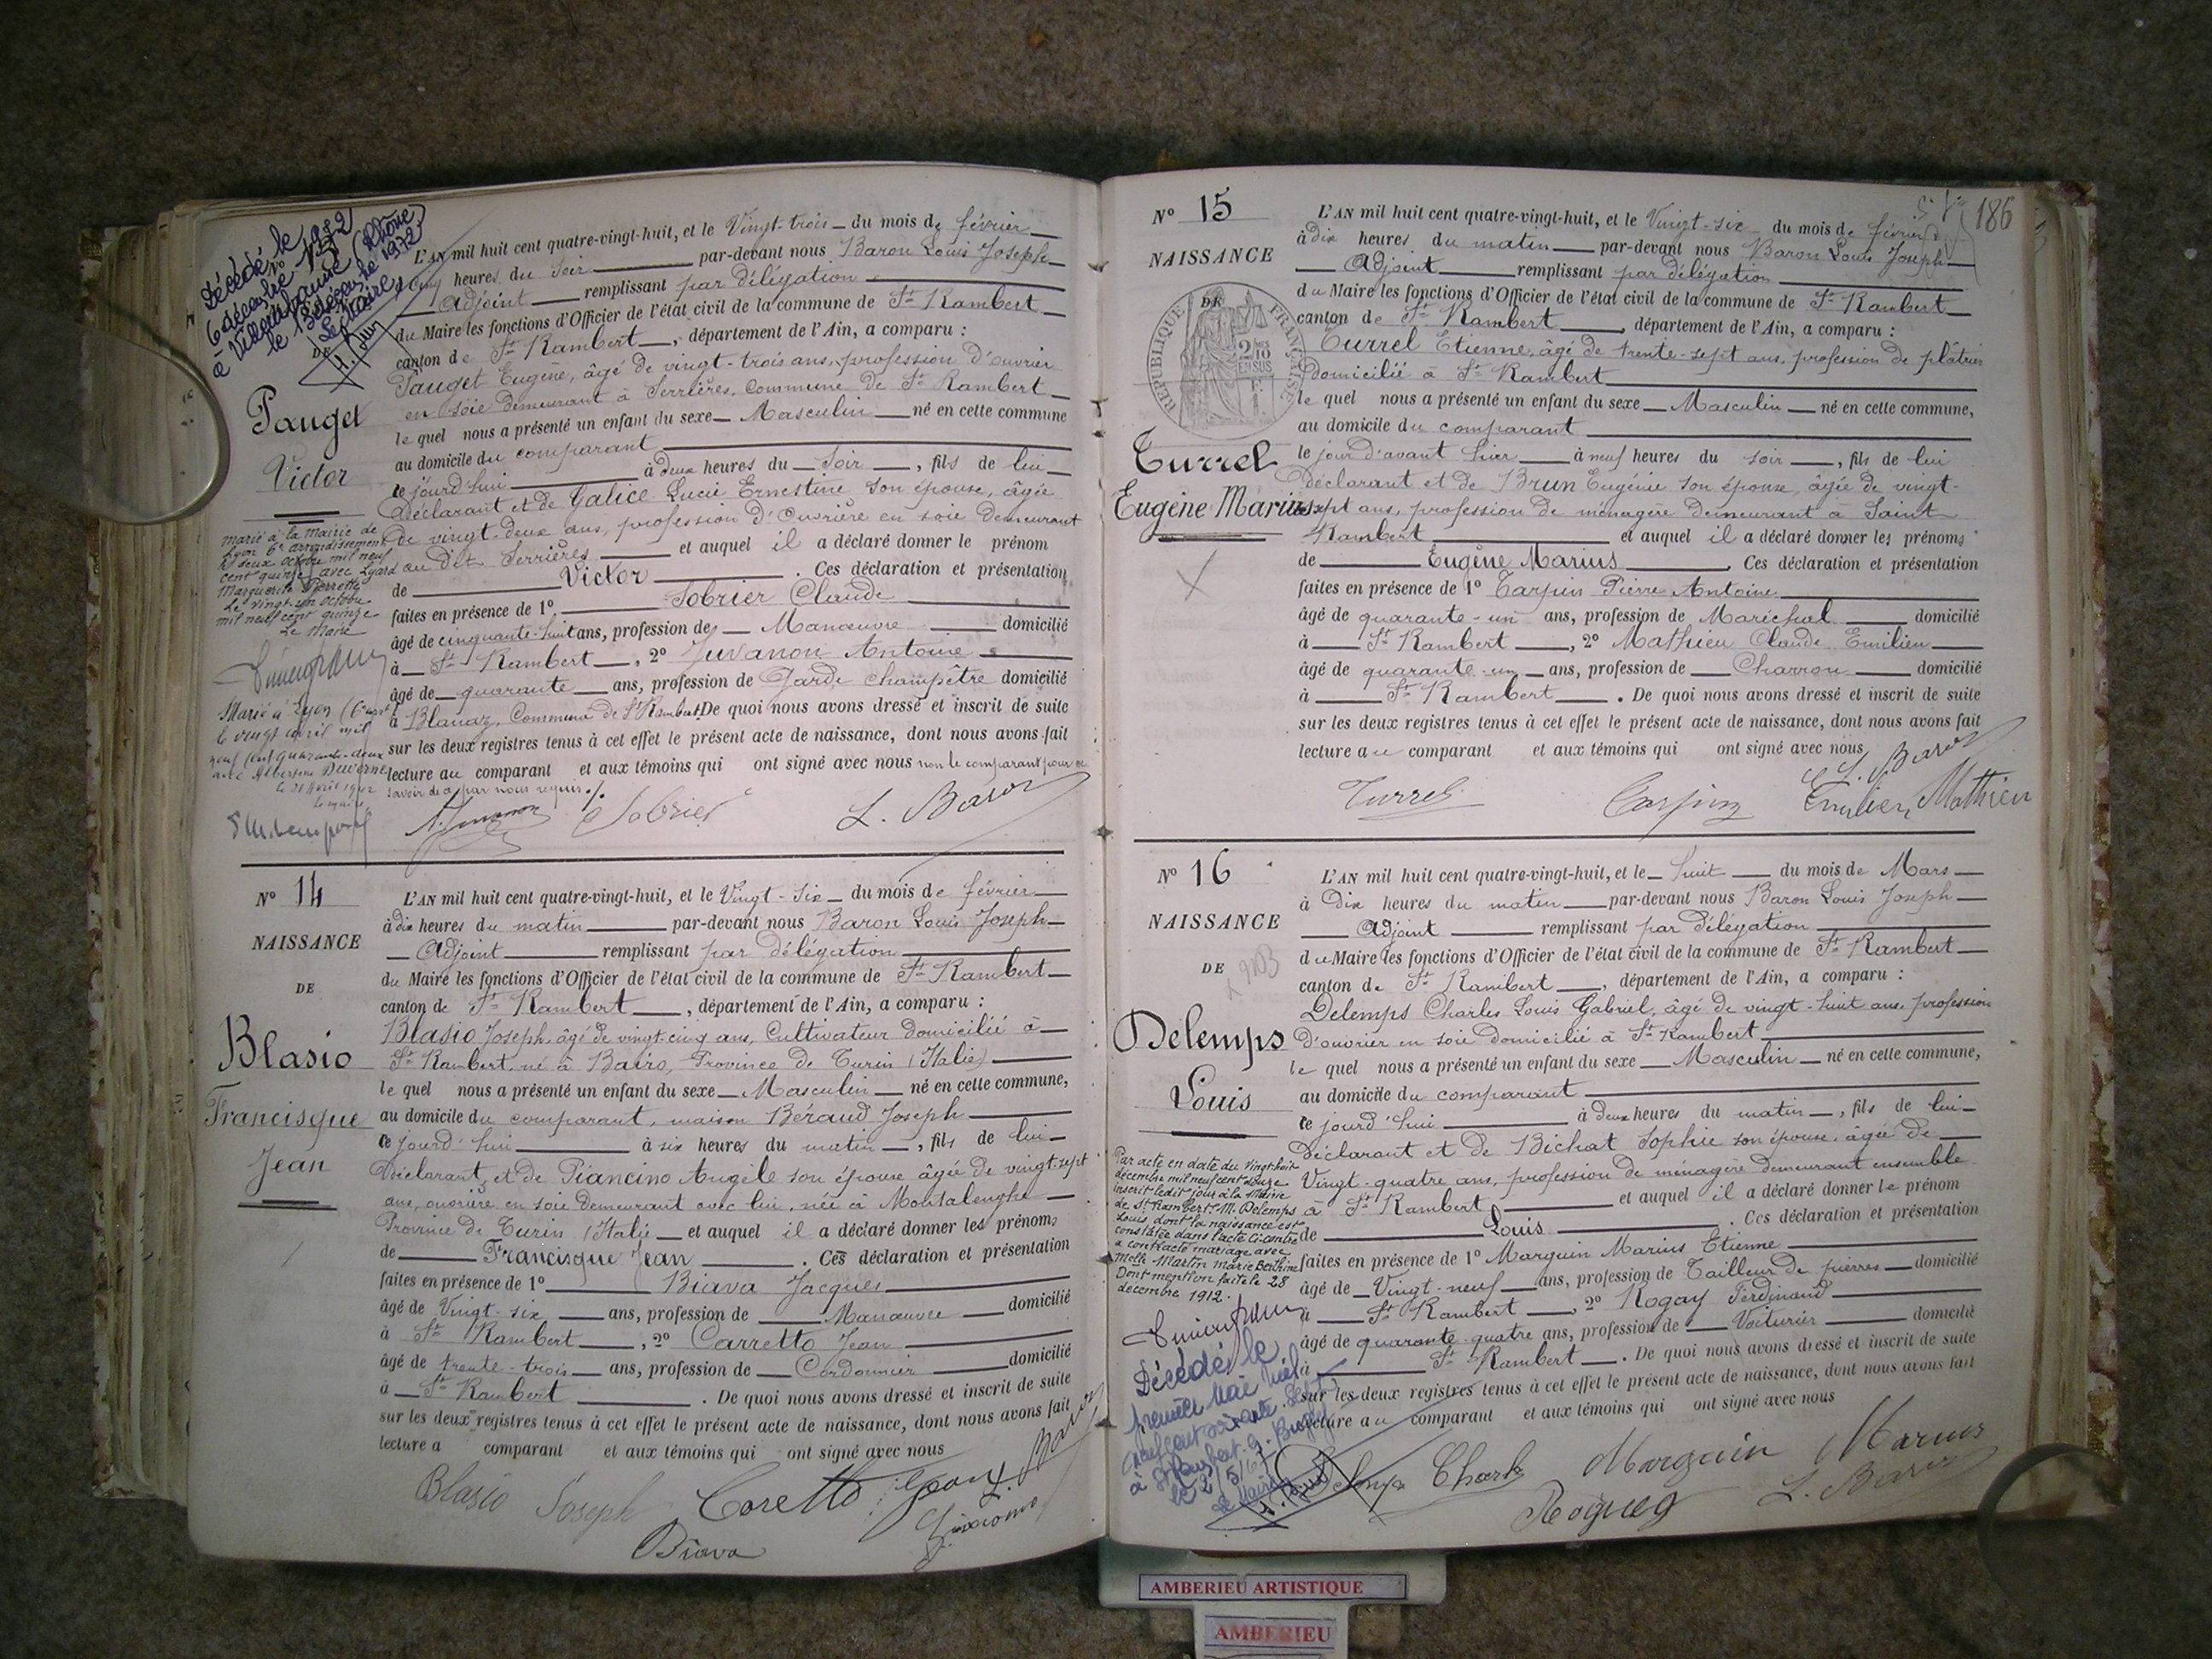 Décédé le
6 décembre 1972
à Villeurbanne (Rhône)
DE
Pauget
Victor
marié à la mairie de
Lyon 6e arrondissement
le deux octobre mil neuf
cent quinze avec Lyard
Marguerite Pierrette
Le vingt-un octobre
mil neuf cent quinze
Le Maire
Marié à Lyon
le vingt avril mil
neuf cent quarante-deux
avec Albertine Duverne
le 21 Avril 1942
le maire
L'AN mil huit cent quatre-vingt-huit, et le Vingt-trois du mois de février
à cinq heures du soir par-devant nous Baron Louis Joseph
Adjoint remplissant par délégation
du Maire les fonctions d'Officier de l'état civil de la commune de St Rambert
canton de St Rambert, département de l'Ain, a comparu :
Pauget Eugène, âgé de vingt-trois ans, profession d'ouvrier
en soie demeurant à Serrières, Commune de St Rambert
le quel nous a présenté un enfant du sexe Masculin né en cette commune
au domicile du comparant
ce jourd'hui à deux heures du soir, fils de lui
déclarant et de Galice Lucie Ernestine son épouse, âgée
de vingt-deux ans, profession d'ouvrière en soie demeurant
au dit Serrières et auquel il a déclaré donner le prénom
de Victor. Ces déclaration et présentation
faites en présence de 1o Sobrier Claude
âgé de cinquante-huit ans, profession de Manœuvre domicilié
à St Rambert, 2o Juvanon Antoine
âgé de quarante ans, profession de Garde champêtre domicilié
à Blanaz, Commune de St Rambert. De quoi nous avons dressé et inscrit de suite
sur les deux registres tenus à cet effet le présent acte de naissance, dont nous avons fait
lecture au comparant et aux témoins qui ont signé avec nous non le comparant pour ne
savoir de ce par nous requis ./.
A. Juvanon Sobrier L. Baron
No 14
NAISSANCE
DE
Blasio
Francisque
Jean
L'AN mil huit cent quatre-vingt-huit, et le Vingt-six du mois de février
à dix heures du matin par-devant nous Baron Louis Joseph
Adjoint remplissant par délégation
du Maire les fonctions d'Officier de l'état civil de la commune de St Rambert
canton de St Rambert, département de l'Ain, a comparu :
Blasio Joseph, âgé de vingt-cinq ans, Cultivateur domicilié à
St Rambert, né à Bairo, Province de Turin (Italie)
le quel nous a présenté un enfant du sexe Masculin né en cette commune,
au domicile du comparant, maison Béraud Joseph
ce jourd'hui à six heures du matin, fils de lui
déclarant, et de Piancino Angèle son épouse âgée de vingt-sept
ans, ouvrière en soie demeurant avec lui, née à Montalenghe
Province de Turin (Italie et auquel il a déclaré donner les prénoms
de Francisque Jean. Ces déclaration et présentation
faites en présence de 1o Biava Jacques
âgé de Vingt-six ans, profession de Manœuvre domicilié
à St Rambert, 2o Carretto Jean
âgé de trente-trois ans, profession de Cordonnier domicilié
à St Rambert. De quoi nous avons dressé et inscrit de suite
sur les deux registres tenus à cet effet le présent acte de naissance, dont nous avons fait
lecture a comparant et aux témoins qui ont signé avec nous
Blasio Joseph Coretto Jean L. Baron
Biava Giacomo
186
No 15
NAISSANCE
DE
RÉPUBLIQUE FRANÇAISE
2/10 EN SUS
Turrel
Eugène Marius
L'AN mil huit cent quatre-vingt-huit, et le Vingt-six du mois de février
à dix heures du matin par-devant nous Baron Louis Joseph
Adjoint remplissant par délégation
du Maire les fonctions d'Officier de l'état civil de la commune de St Rambert
canton de St Rambert, département de l'Ain, a comparu :
Turrel Etienne, âgé de trente-sept ans, profession de plâtrier
domicilié à St Rambert
le quel nous a présenté un enfant du sexe Masculin né en cette commune,
au domicile du comparant
le jour d'avant hier à neuf heures du soir, fils de lui
déclarant et de Brun Eugénie son épouse, âgée de vingt-
sept ans, profession de ménagère demeurant à Saint
Rambert et auquel il a déclaré donner les prénoms
de Eugène Marius. Ces déclaration et présentation
faites en présence de 1o Tarpin Pierre Antoine
âgé de quarante-un ans, profession de Maréchal domicilié
à St Rambert, 2o Mathieu Claude Emilien
âgé de quarante-un ans, profession de Charron domicilié
à St Rambert. De quoi nous avons dressé et inscrit de suite
sur les deux registres tenus à cet effet le présent acte de naissance, dont nous avons fait
lecture au comparant et aux témoins qui ont signé avec nous
L. Baron
Turrel Tarpin Emilien Mathieu
No 16
NAISSANCE
DE
Delemps
Louis
Par acte en date du vingt huit
décembre mil neuf cent douze
inscrit ledit jour à la Mairie
de St Rambert M. Delemps
Louis dont la naissance est
constatée dans l'acte ci-contre
a contracté mariage avec
Melle Martin Marie Berthine
Dont mention faite le 28
décembre 1912.
Décédé le
premier Mai mil
neuf cent soixante sept
à St Rambert-en-Bugey
le 2/5/67
Le Maire
L'AN mil huit cent quatre-vingt-huit, et le huit du mois de Mars
à Dix heures du matin par-devant nous Baron Louis Joseph
Adjoint remplissant par délégation
du Maire les fonctions d'Officier de l'état civil de la commune de St Rambert
canton de St Rambert, département de l'Ain, a comparu :
Delemps Charles Louis Gabriel, âgé de vingt-huit ans, profession
d'ouvrier en soie domicilié à St Rambert
le quel nous a présenté un enfant du sexe Masculin né en cette commune,
au domicile du comparant
ce jourd'hui à deux heures du matin, fils de lui
déclarant et de Bichat Sophie son épouse, âgée de
Vingt-quatre ans, profession de ménagère demeurant ensemble
à St Rambert et auquel il a déclaré donner le prénom
de Louis. Ces déclaration et présentation
faites en présence de 1o Marguin Marius Etienne
âgé de Vingt-neuf ans, profession de Tailleur de pierres domicilié
à St Rambert, 2o Rogay Ferdinand
âgé de quarante-quatre ans, profession de Voiturier domicilié
à St Rambert. De quoi nous avons dressé et inscrit de suite
sur les deux registres tenus à cet effet le présent acte de naissance, dont nous avons fait
lecture au comparant et aux témoins qui ont signé avec nous
Delemps Charles Marguin Marius
L. Baron
AMBERIEU ARTISTIQUE
AMBERIEU